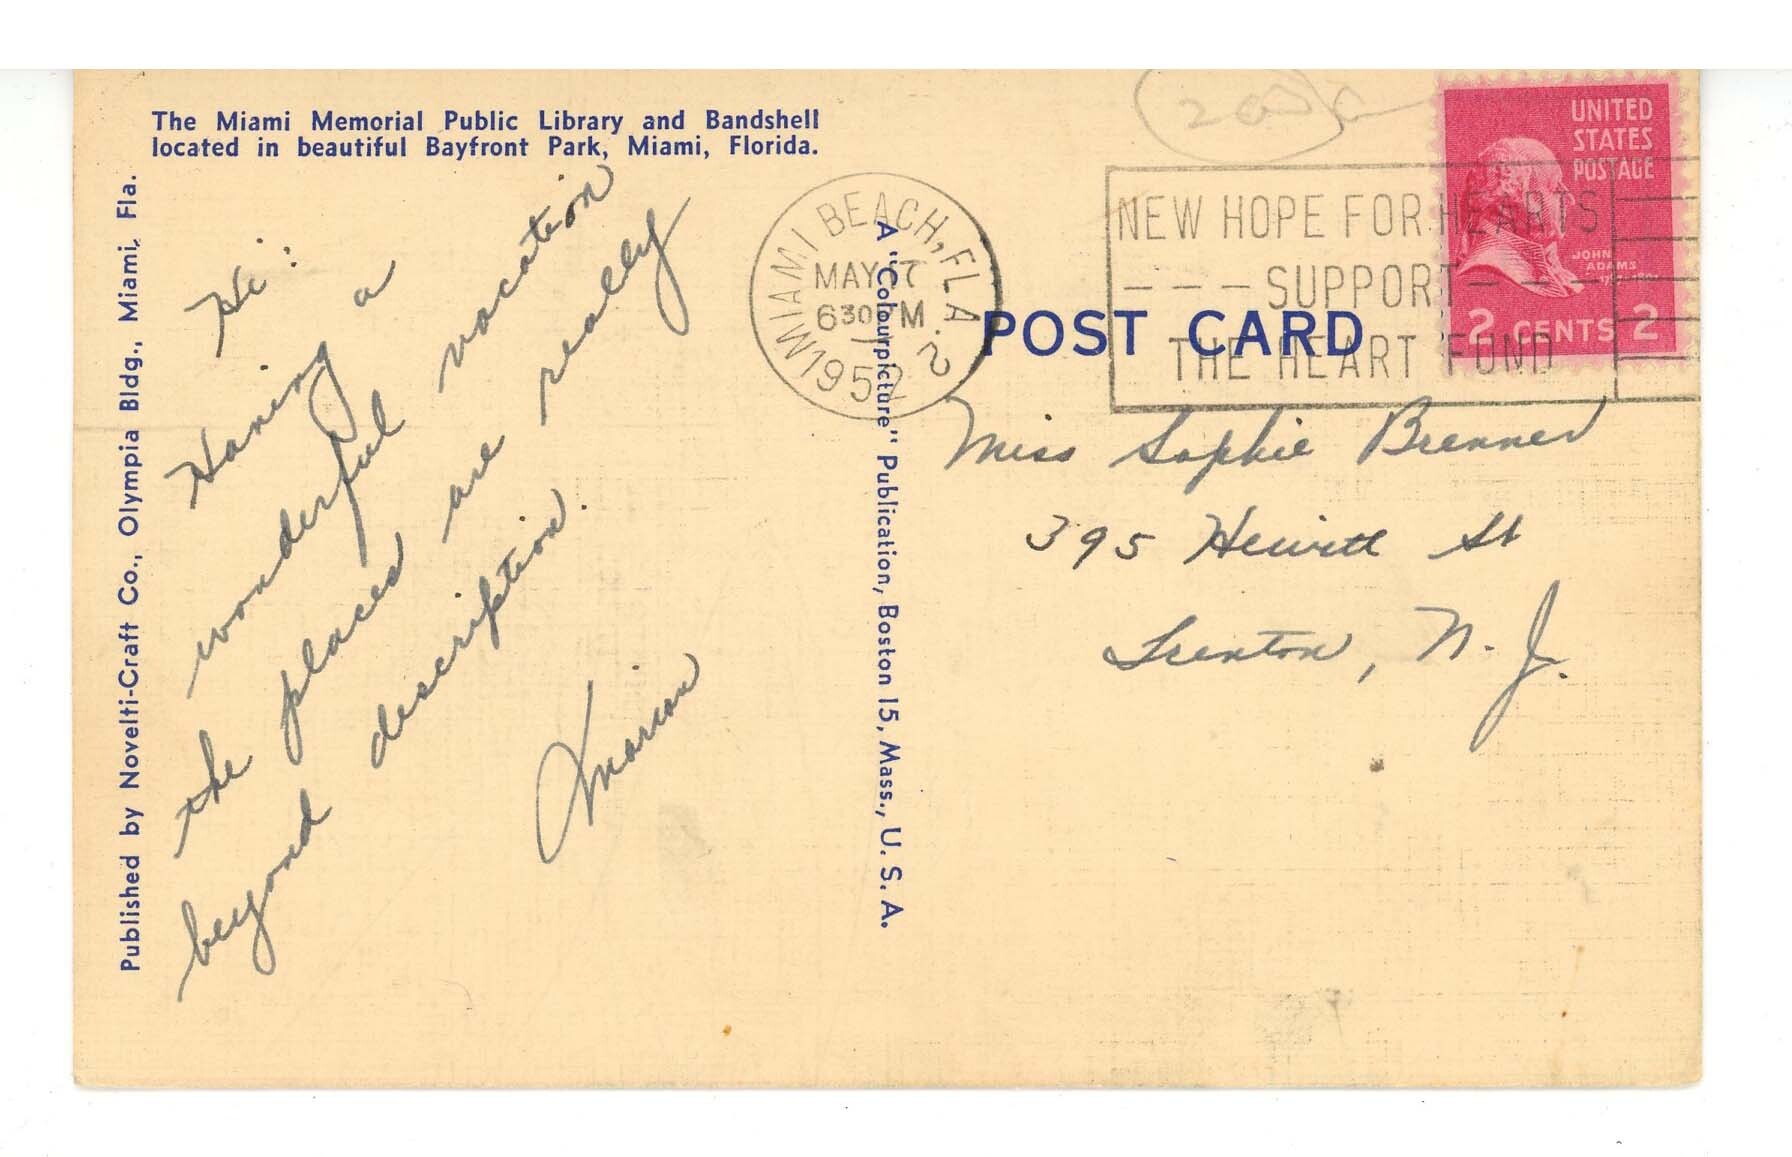 The Miami Memorial Public Library and Bandshell
located in beautiful Bayfront Park, Miami, Florida.
Published by Novelti-Craft Co., Olympia Bldg., Miami, Fla.
Hi:
Having a
wonderful vacation
the places are really
beyond description.
Marion
A "Colourpicture" Publication, Boston 15, Mass., U. S. A.
MIAMI BEACH, FLA. 2
MAY 7
630 PM
1952
NEW HOPE FOR HEARTS
--- SUPPORT ---
THE HEART FUND
UNITED
STATES
POSTAGE
JOHN
ADAMS
2 CENTS 2
POST CARD
Miss Sophie Brenner
395 Hewitt St
Trenton, N. J.